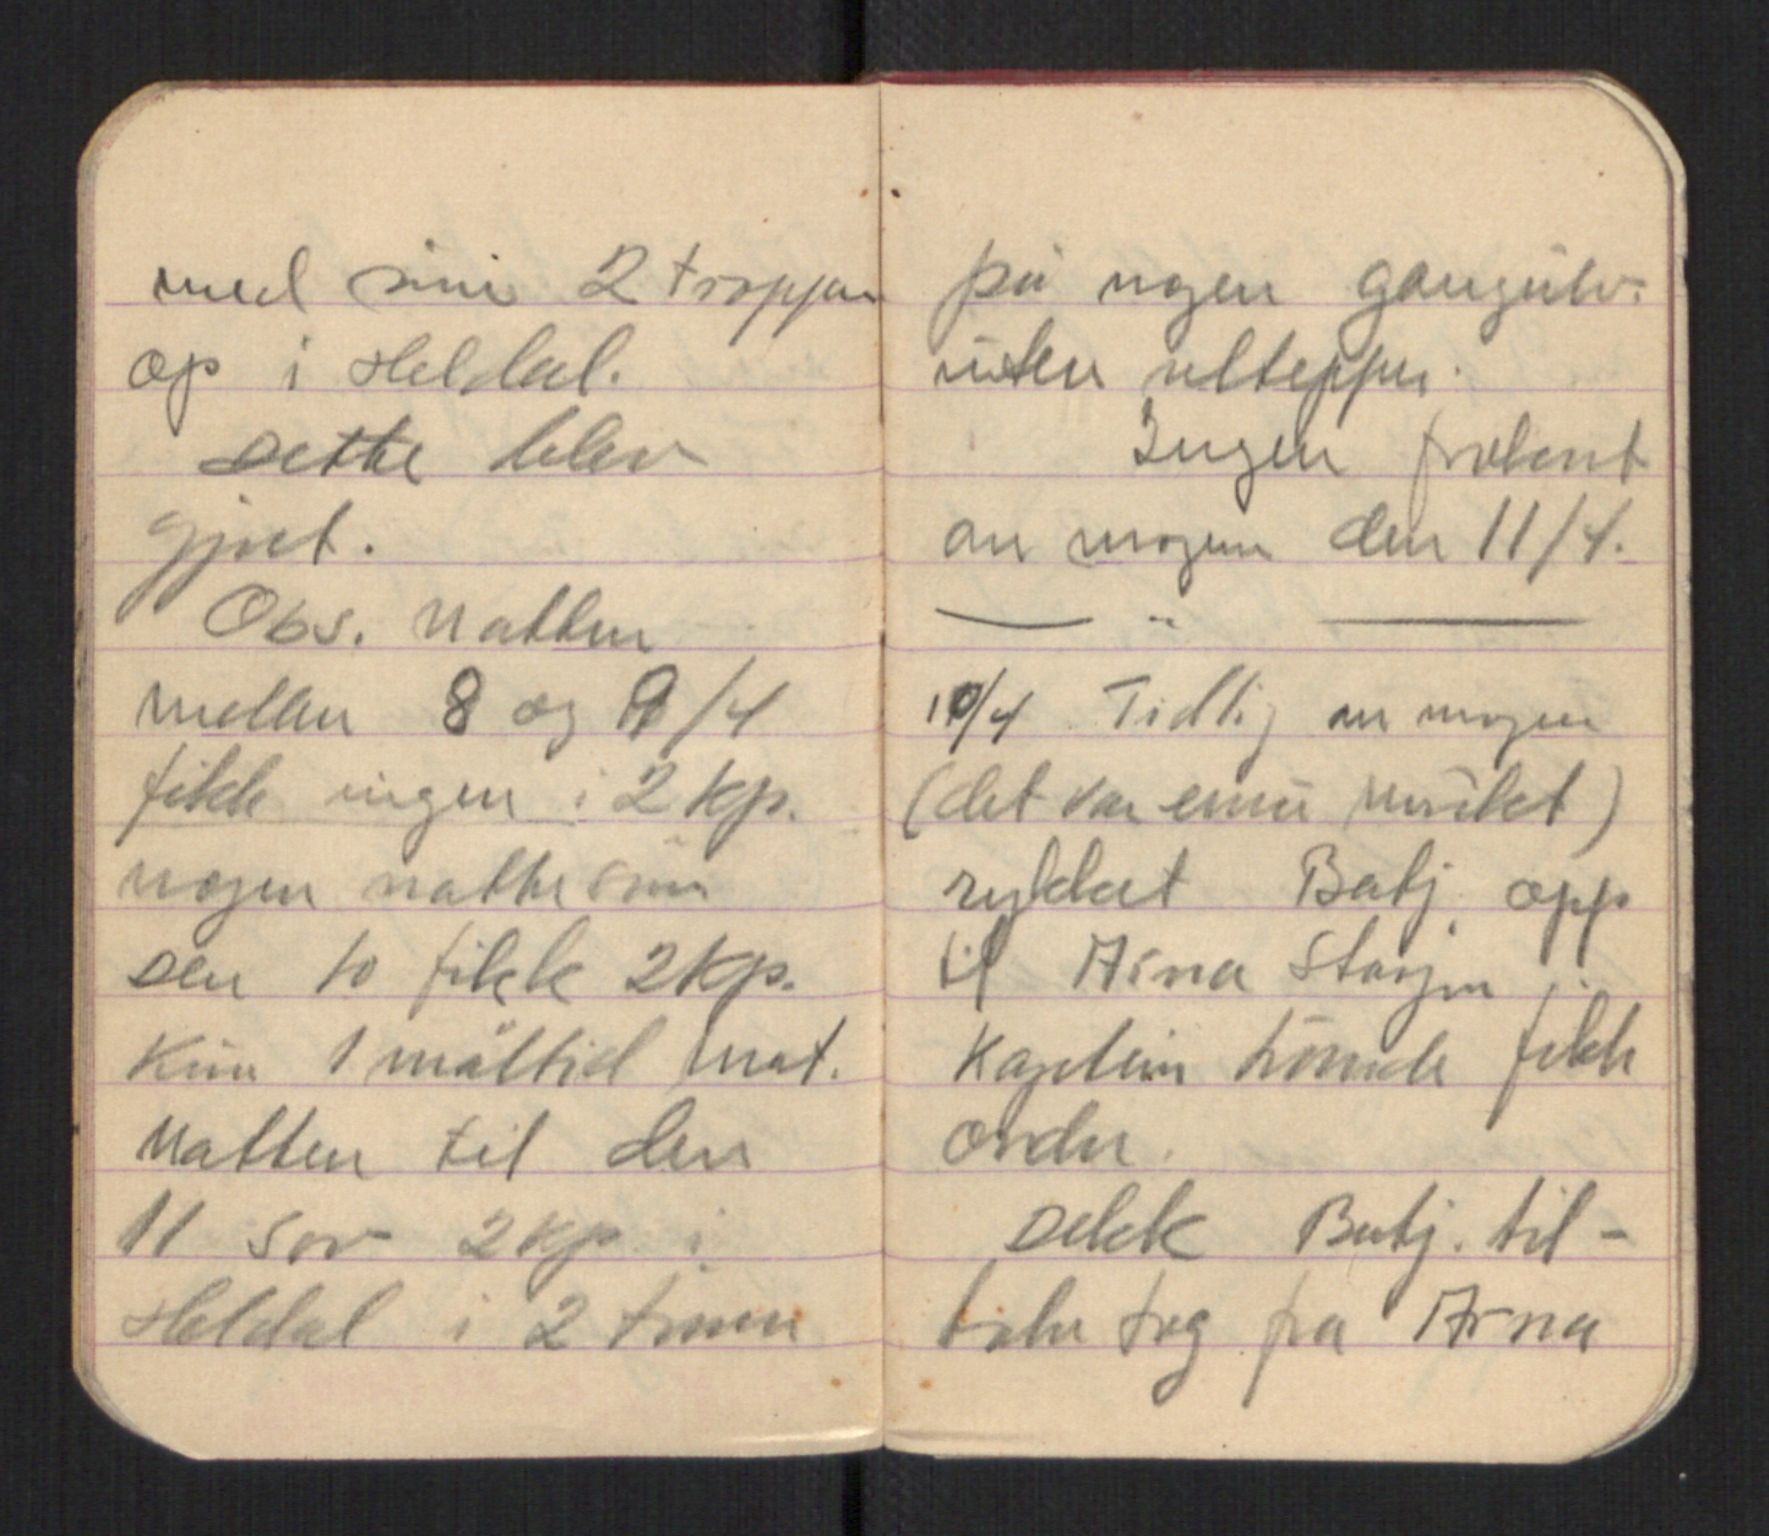 med sine 2 tropper
op i Heldal.
Dette blev
gjort.
Obs. Natten
mellem 8 og 9/4
fikk ingen i 2 kp.
nogen nattesøvn
Den 10 fikk 2 kp.
kun 1 måltid mat.
Natten til den
11 sov 2 kp i
Heldal i 2 timer
på nogen gangulv.
uten ulltepper.
Ingen frokost
om morgenen den 11/4.
— " —
10/4 Tidlig om morgen
(det var ennu mørket)
rykket Batj. opp
til Arna Stasjon
Kaptein fikk
order.
Dekk Batj. til-
tog fra Arna